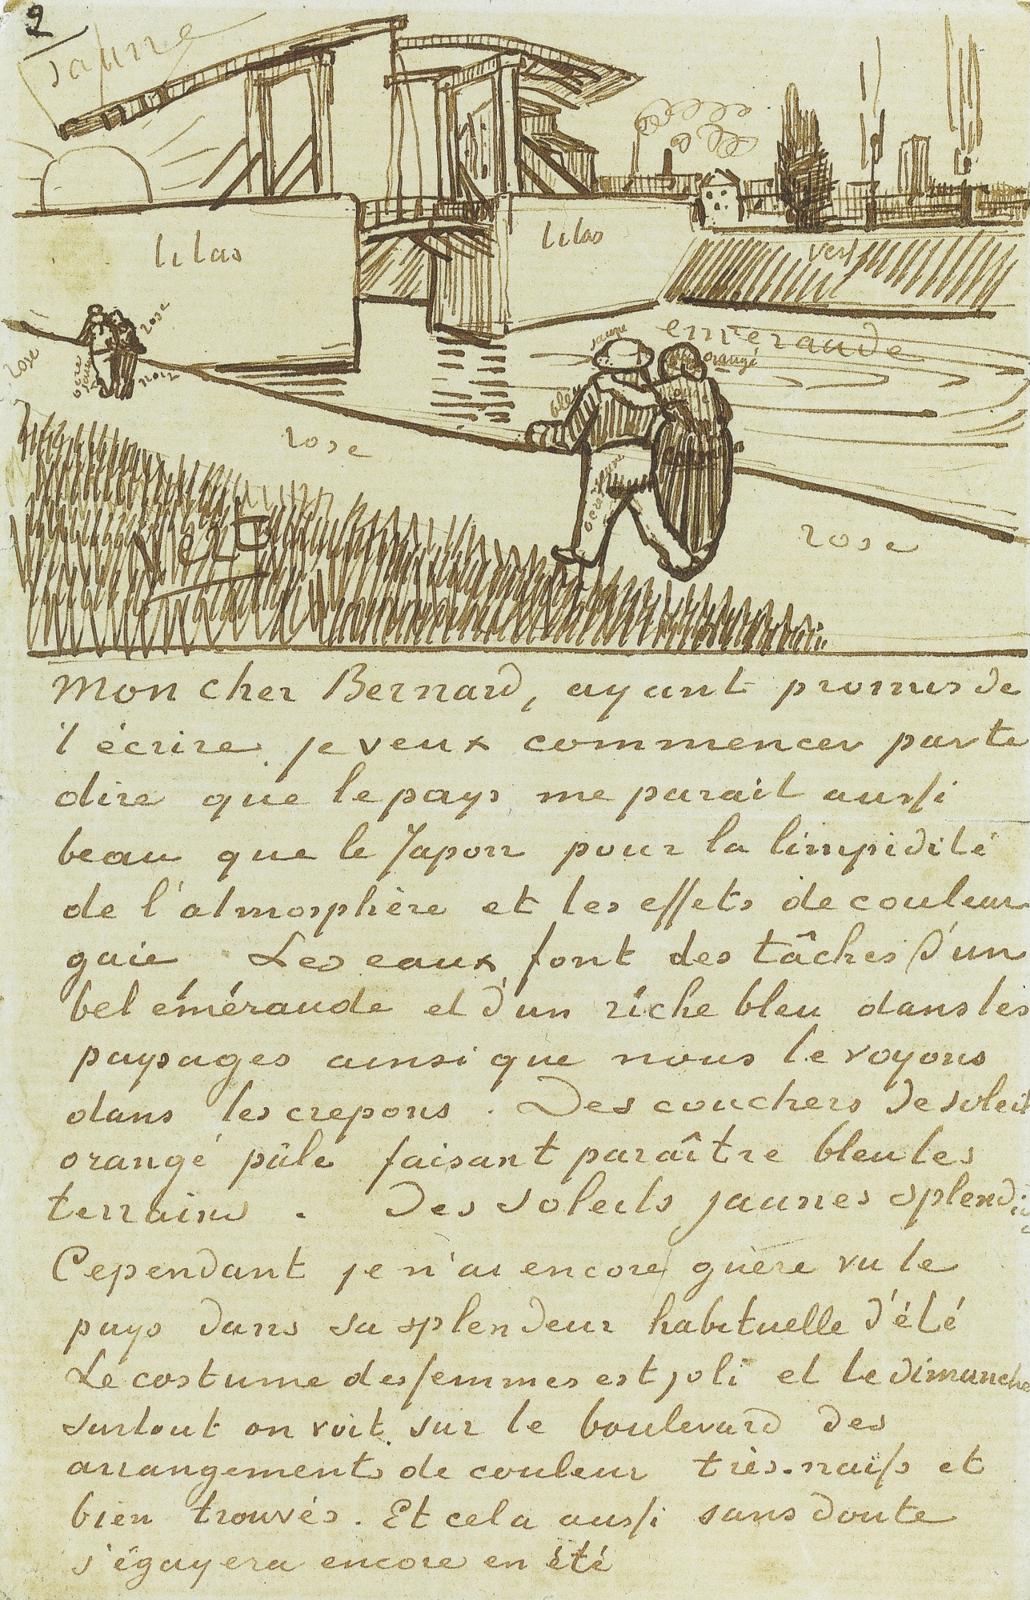 2
Jaune
lilas
lilas
vert
emeraude
jaune
orangé
rose
rose
noir
bleu
rouge
rose
rose
vert
Mon cher Bernard, ayant promis de
t'écrire je veux commencer par te
dire que le pays me parait aussi
beau que le Japon pour la limpidité
de l'atmosphère et les effets de couleur
gaie Les eaux font des tâches d'un
bel éméraude et d'un riche bleu dans les
paysages ainsi que nous le voyons
dans les crepons. Des couchers de soleil
orangé pâle faisant paraître bleu les
terrains. Des soleils jaunes splendides
Cependant je n'ai encore guère vu le
pays dans sa splendeur habituelle d'été
Le costume des femmes est joli et le dimanche
surtout on voit sur le boulevard des
arrangements de couleur très-naifs et
bien trouvés. Et cela aussi sans doute
s'égayera encore en été